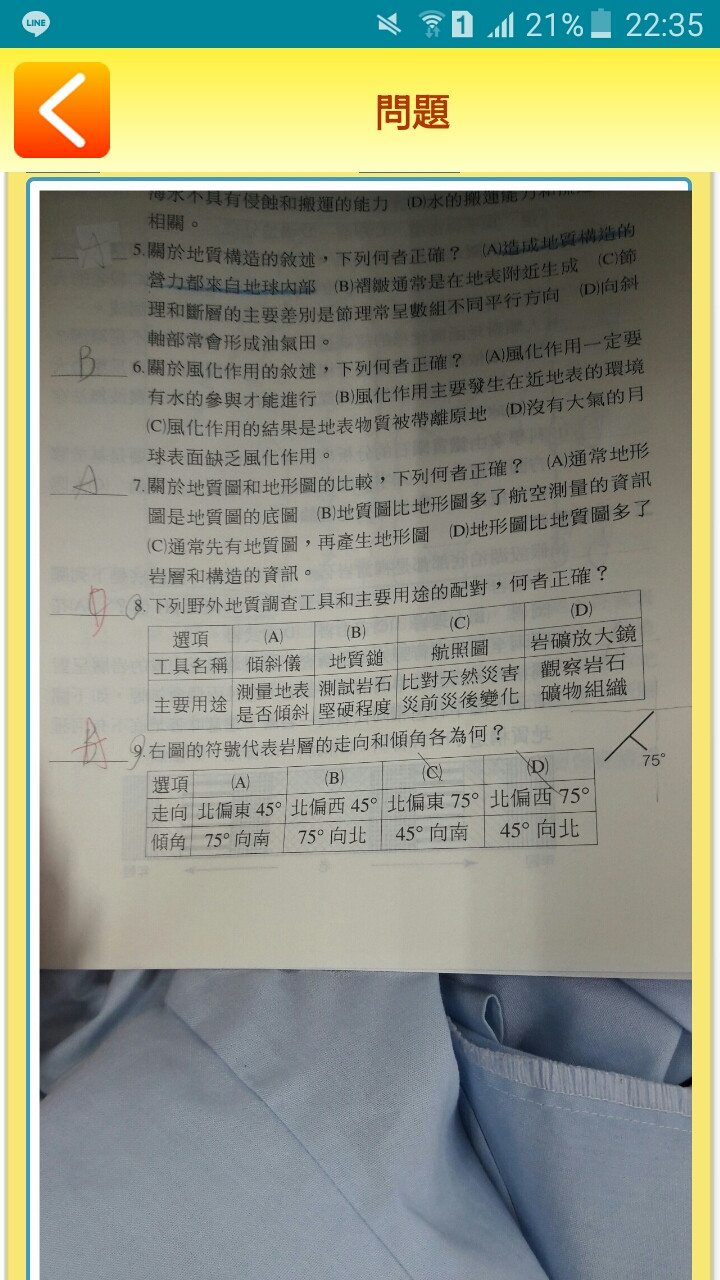 LINE
1 21% 22:35
問題
海水不具有侵蝕和搬運的能力 (D)水的搬運能力和
相關。
A 5.關於地質構造的敘述，下列何者正確？ (A)造成地質構造的
營力都來自地球內部 (B)褶皺通常是在地表附近生成 (C)節
理和斷層的主要差別是節理常呈數組不同平行方向 (D)向斜
軸部常會形成油氣田。
B 6.關於風化作用的敘述，下列何者正確？ (A)風化作用一定要
有水的參與才能進行 (B)風化作用主要發生在近地表的環境
(C)風化作用的結果是地表物質被帶離原地 (D)沒有大氣的月
球表面缺乏風化作用。
A 7.關於地質圖和地形圖的比較，下列何者正確？ (A)通常地形
圖是地質圖的底圖 (B)地質圖比地形圖多了航空測量的資訊
(C)通常先有地質圖，再產生地形圖 (D)地形圖比地質圖多了
岩層和構造的資訊。
8.下列野外地質調查工具和主要用途的配對，何者正確？
選項 (A) (B) (C) (D)
工具名稱 傾斜儀 地質鎚 航照圖 岩礦放大鏡
主要用途 測量地表是否傾斜 測試岩石堅硬程度 比對天然災害災前災後變化 觀察岩石礦物組織
9.右圖的符號代表岩層的走向和傾角各為何？
75°
選項 (A) (B) (C) (D)
走向 北偏東 45° 北偏西 45° 北偏東 75° 北偏西 75°
傾角 75° 向南 75° 向北 45° 向南 45° 向北